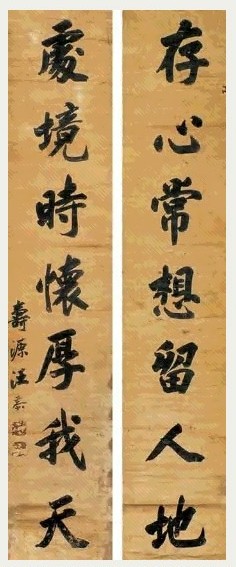 存心常想留人地
處境時懷厚我天
壽源汪